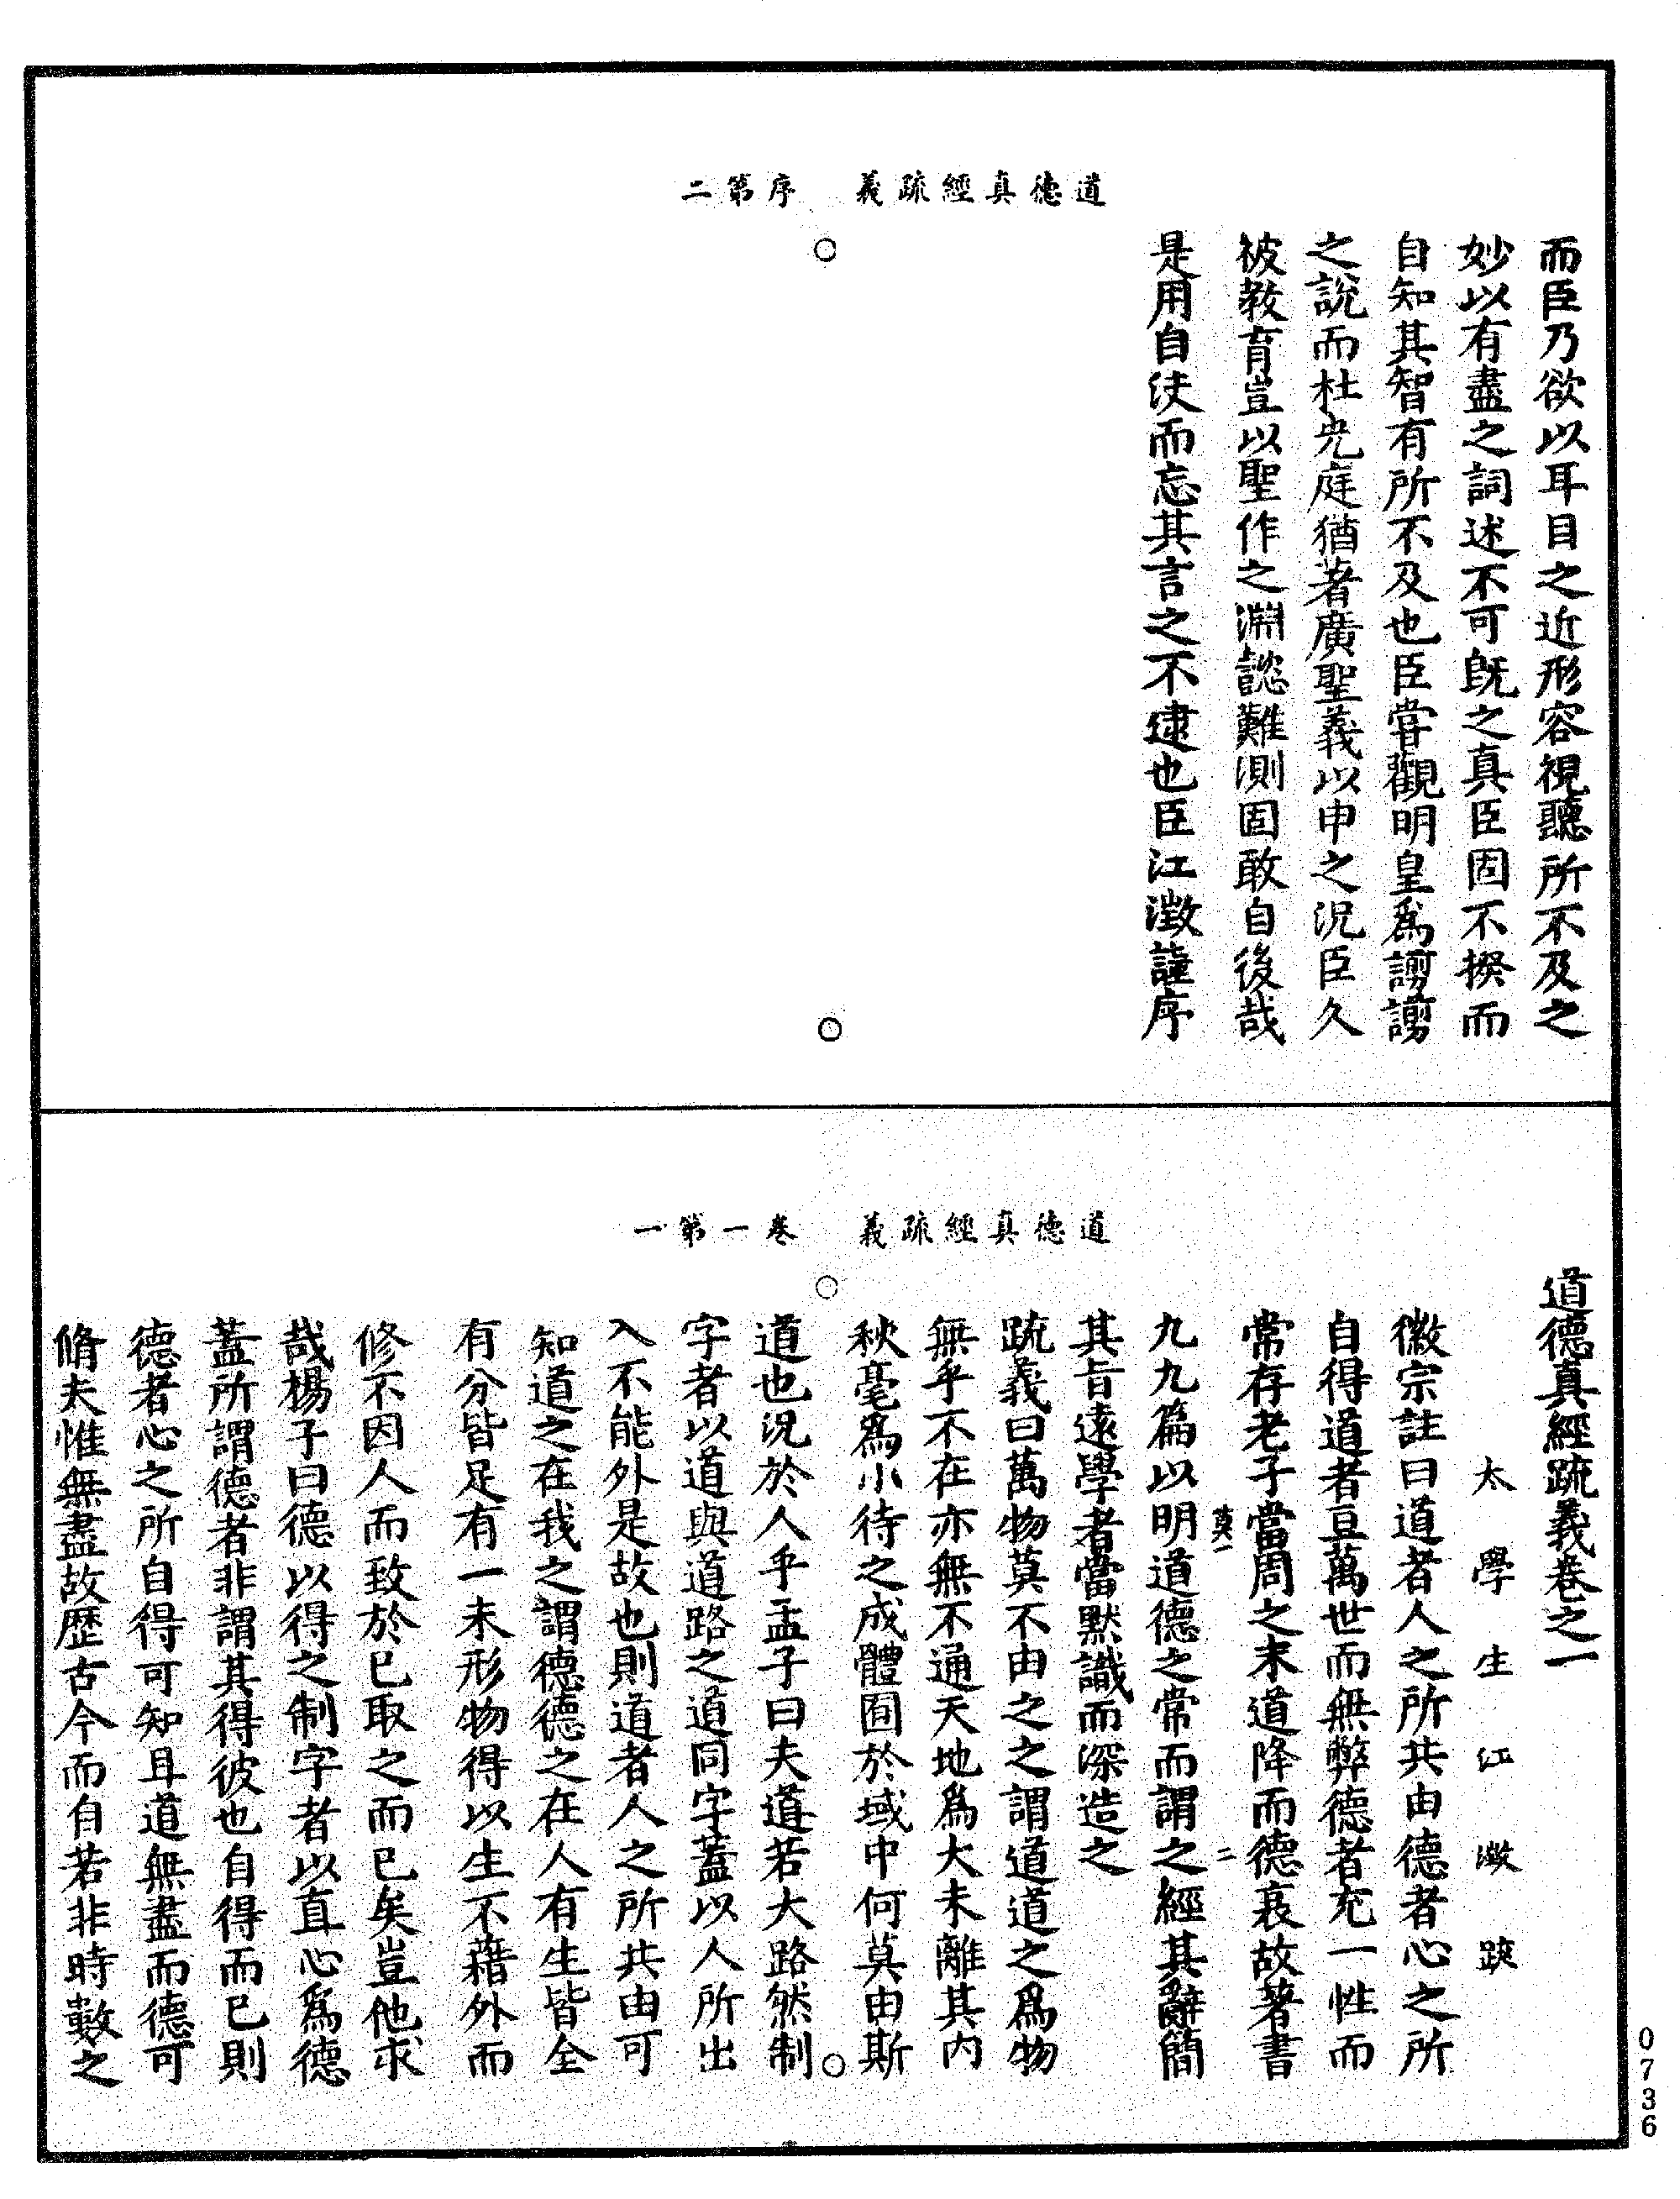 道德真經疏義　序第二
而臣乃欲以耳目之近形容視聽所不及之
妙以有盡之詞述不可旣之真臣固不揆而
自知其智有所不及也臣甞觀明皇爲謭謭
之說而杜光庭猶著廣聖義以申之況臣久
被教育豈以聖作之淵懿難測固敢自後哉
是用自決而忘其言之不逮也臣江澂謹序
道德真經疏義　卷一第一
道德真經疏義卷之一
太學生江澂疏
徽宗註曰道者人之所共由德者心之所
自得道者亘萬世而無弊德者充一性而
常存老子當周之末道降而德衰故著書
莫一　二
九九篇以明道德之常而謂之經其辭簡
其旨遠學者當默識而深造之
疏義曰萬物莫不由之之謂道道之爲物
無乎不在亦無不通天地爲大未離其內
秋毫爲小待之成體囿於域中何莫由斯
道也況於人乎孟子曰夫道若大路然制
字者以道與道路之道同字蓋以人所出
入不能外是故也則道者人之所共由可
知道之在我之謂德德之在人有生皆全
有分皆足有一未形物得以生不藉外而
修不因人而致於已取之而已矣豈他求
哉楊子曰德以得之制字者以直心爲德
蓋所謂德者非謂其得彼也自得而已則
德者心之所自得可知且道無盡而德可
脩夫惟無盡故歷古今而自若非時數之
0736